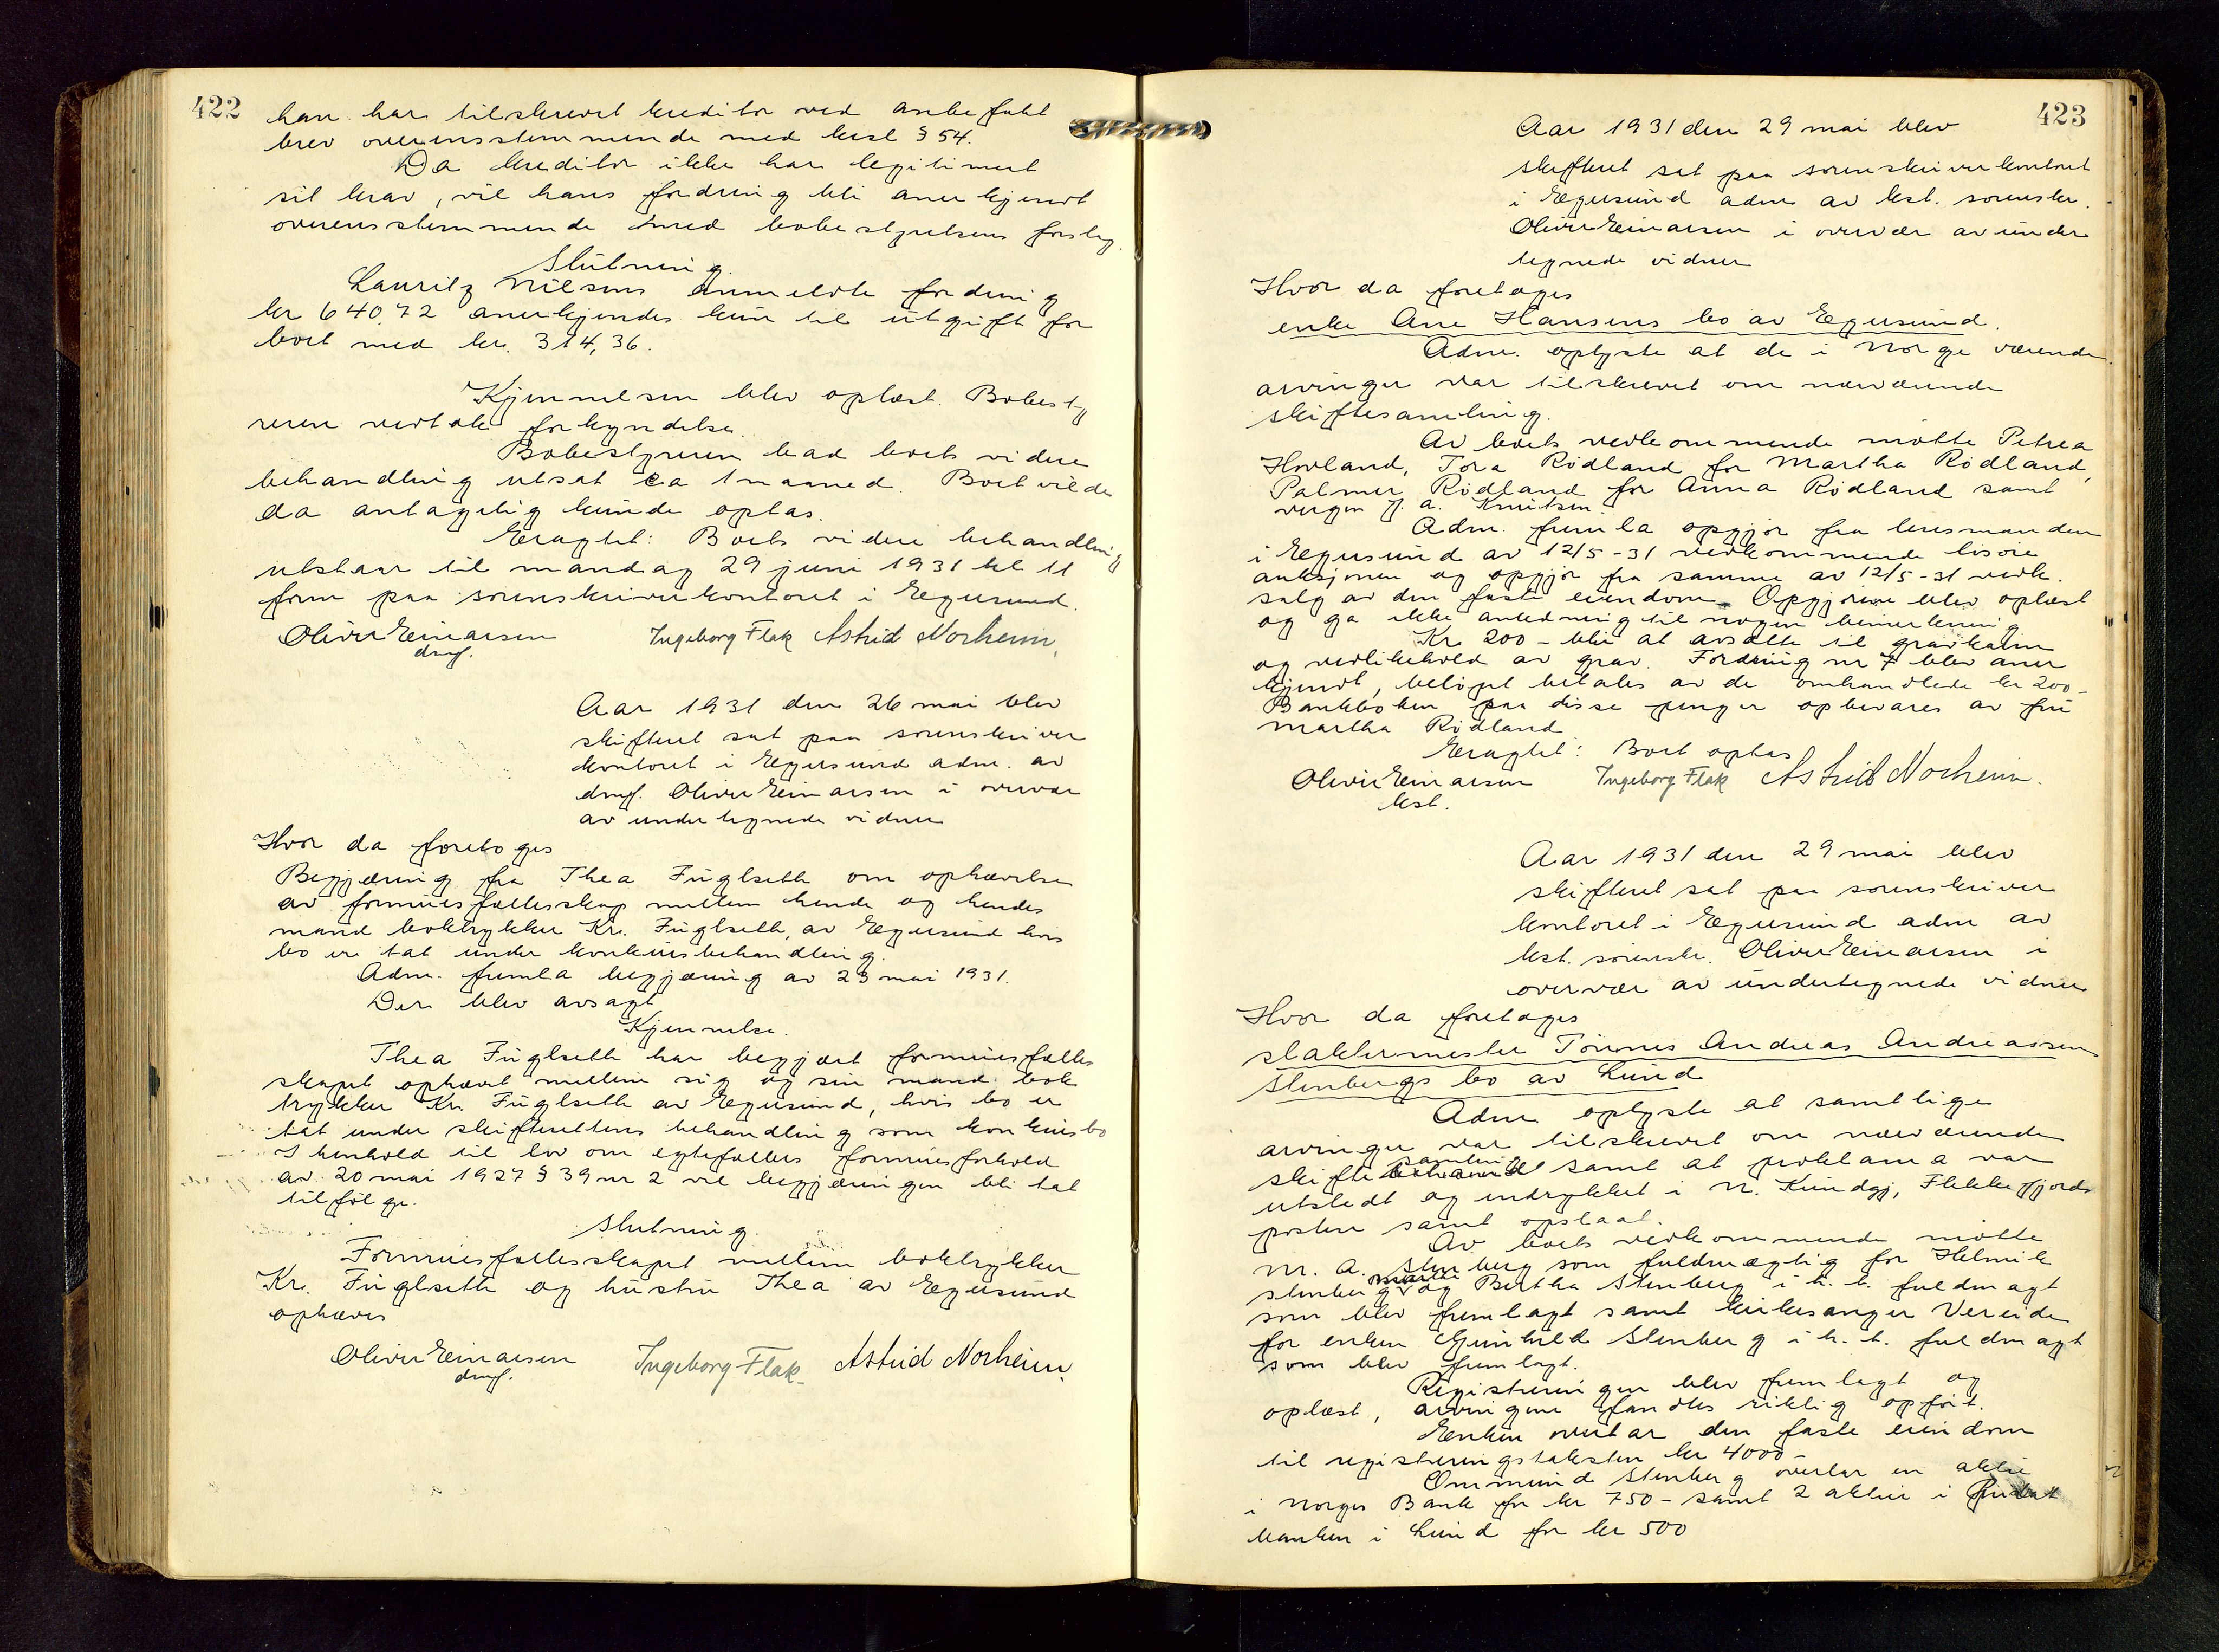 422
han har tilskrevet kreditor ved anbefalt
brev overensstemmende med kksl § 54.
Da kreditor ikke har legitimert
sit krav, vil hans fordring bli anerkjendt
overensstemmende med bobestyrelsens forslag.
Slutning.
Lauritz Nilsens anmeldte fordring
kr 640,72 anerkjendes kun til utgift for
boet med kr. 314,36.
Kjennelsen blev oplæst. Bobesty
reren vedtok forkyndelse.
Bobestyreren bad boets videre
behandling utsat ca 1 maaned. Boet vilde
da antagelig kunde optas.
Eragtet: Boets videre behandling
utstaar til mandag 29 juni 1931 kl 11
form paa sorenskriverkontoret i Egersund.
Oliver Einarsen Ingeborg Flak Astrid Norheim.
dmf.
Aar 1931 den 26 mai blev
skifteret sat paa sorenskriver
kontoret i Egersund adm. av
dmf. Oliver Einarsen i overvær
av undertegnede vidner
Hvor da foretoges
Begjæring fra Thea Fuglseth om ophævelse
av formuesfællesskap mellem hende og hendes
mand boktrykker Kr. Fuglseth, av Egersund hvis
bo er tat under konkursbehandling.
Adm. fremla begjæring av 23 mai 1931.
Der blev avsagt
Kjennelse.
Thea Fuglseth har begjært formuesfælles
skapet ophævet mellem sig og sin mand bok
trykker Kr. Fuglseth av Egersund, hvis bo er
tat under skifterettens behandling som konkursbo
I henhold til lov om egtefællers formuesforhold
av 20 mai 1927 § 39 nr 2 vil begjæringen bli tat
tilfølge.
Slutning
Formuesfællesskapet mellem boktrykker
Kr. Fuglseth og hustru Thea av Egersund
ophæves
Oliver Einarsen Ingeborg Flak Astrid Norheim.
dmf.
423
Aar 1931 den 29 mai blev
skifteret sat paa sorenskriverkontoret
i Egersund adm av kst. sorenskr.
Oliver Einarsen i overvær av under
tegnede vidner
Hvor da foretoges
enke Ane Hansens bo av Egersund.
Adm. oplyste at de i Norge værende
arvinger var tilskrevet om nærværende
skiftesamling.
Av boets vedkommende møtte Petrea
Hovland, Tora Rødland for Martha Rødland,
Palmer Rødland for Anna Rødland samt
vergen J. A. Knutsen.
Adm. fremla opgjør fra lensmanden
i Egersund av 12/5-31 vedkommende løsøre
auksjonen og opgjør fra samme av 12/5-31 vedk.
salg av den faste eiendom. Opgjørene blev oplæst
og ga ikke anledning til nogen bemerkning
Kr 200 - blir at avsætte til gravkalm
og vedlikehold av grav. Fordring nr 7 blev aner
kjendt, beløpet betales av de omhandlede kr 200-
Bankboken paa disse penger opbevares av fru
Martha Rødland
Eragtet: Boet optas
Oliver Einarsen Ingeborg Flak Astrid Norheim.
kst.
Aar 1931 den 29 mai blev
skifteret sat paa sorenskriver
kontoret i Egersund adm av
kst. sorenskr. Oliver Einarsen i
overvær av undertegnede vidner
Hvor da foretoges
stakkermester Tønnes Andreas Andreassens
Stenbergs bo av Lund
Adm oplyste at samtlige
arvinger var tilskrevet om nærværende
skiftesamling samt at proklama var
utstedt og indrykket i N. Kundgj, Flekkefjords
posten samt opslaat.
Av boets vedkommende møtte
M. A. Stenberg som fuldmægtig for Helmik
Stenberg og Bertha Stenberg i h. t. fuldmagt
som blev fremlagt samt kirkesanger Vereide
for enken Gunhild Stenberg i h. t. fuldmagt
som blev fremlagt.
Registreringen blev fremlagt og
oplæst, arvingene fandtes riktig opført.
Enken overtar den faste eiendom
til registreringstaksten kr 4000-
Ommund Stenberg overtar en aktie
i Norges Bank for kr 750 - samt 2 aktier i Privat
banken i Lund for kr 500